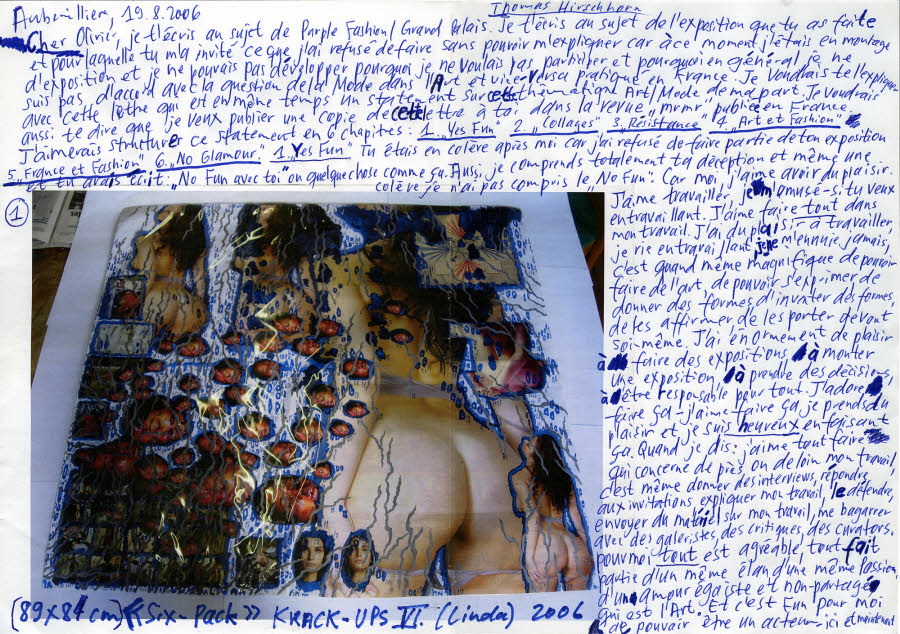 Aubervilliers, 19.8.2006
Thomas Hirschhorn
Cher Olivier, je t'écris au sujet de Parple Fashion/Grand Palais. Je t'écris au sujet de l'exposition que tu as faite
et pour laquelle tu m'a invité ce que j'ai refusé de faire sans pouvoir m'expliquer car à ce moment j'étais en montage
d'exposition et je ne pouvais pas développer pourquoi je ne voulais pas participer et pourquoi en général je ne
suis pas d'accord avec la question de la Mode dans "l'Art et vice-versa pratiqué en France. Je voudrais te l'expliquer
avec cette lettre qui est en même temps un statement sur cette thématique Art/Mode de ma part. Je voudrais
aussi te dire que je veux publier une copie de cette lettre à toi dans la revue "mrmr" publié en France.
J'aimerais structurer ce statement en 6 chapitres: 1. "Yes Fun" 2. "Collages" 3. "Résistance" 4. "Art et Fashion"
5. "France et Fashion" 6. "No Glamour" 1. "Yes Fun" Tu étais en colère après moi car j'ai refusé de faire partie de ton exposition
et tu avais écrit: "No Fun avec toi" ou quelque chose comme ça. Aussi, je comprends totalement ta déception et même une
colère je n'ai pas compris le "No Fun". Car moi j'aime avoir du plaisir.
1
J'aime travailler, je m'amuse-si tu veux
en travaillant. J'aime faire tout dans
mon travail. J'ai du plaisir à travailler,
je rie en travaillant je ne m'ennuie jamais,
c'est quand même magnifique de pouvoir
faire de l'art, de pouvoir s'exprimer de
donner des formes d'inventer des formes,
de les affirmer de les porter devant
soi-même. J'ai énormement de plaisir
à faire des expositions à monter
une exposition, à prendre des décisions,
à être responsable pour tout. J'adore
faire ça-j'aime-faire ça, je prends du
plaisir et je suis heureux en faisant
ça. Quand je dis: j'aime tout faire
qui concerne de près ou de loin mon travail
c'est même donner des interviews, répondre
aux invitations expliquer mon travail, le défendre,
envoyer du matériel sur mon travail, me bagarrer
avec des galeristes, des critiques, des curators.
pour moi tout est agréable, tout fait
partie d'un même élan d'une même passion,
d'un amour égoïste et non-partagé
qui est l'Art. Et c'est Fun pour moi
de pouvoir être un acteur-ici et maintenant
(89x84cm) «Six-Pack» KRACK-UPS VI. (Linda) 2006